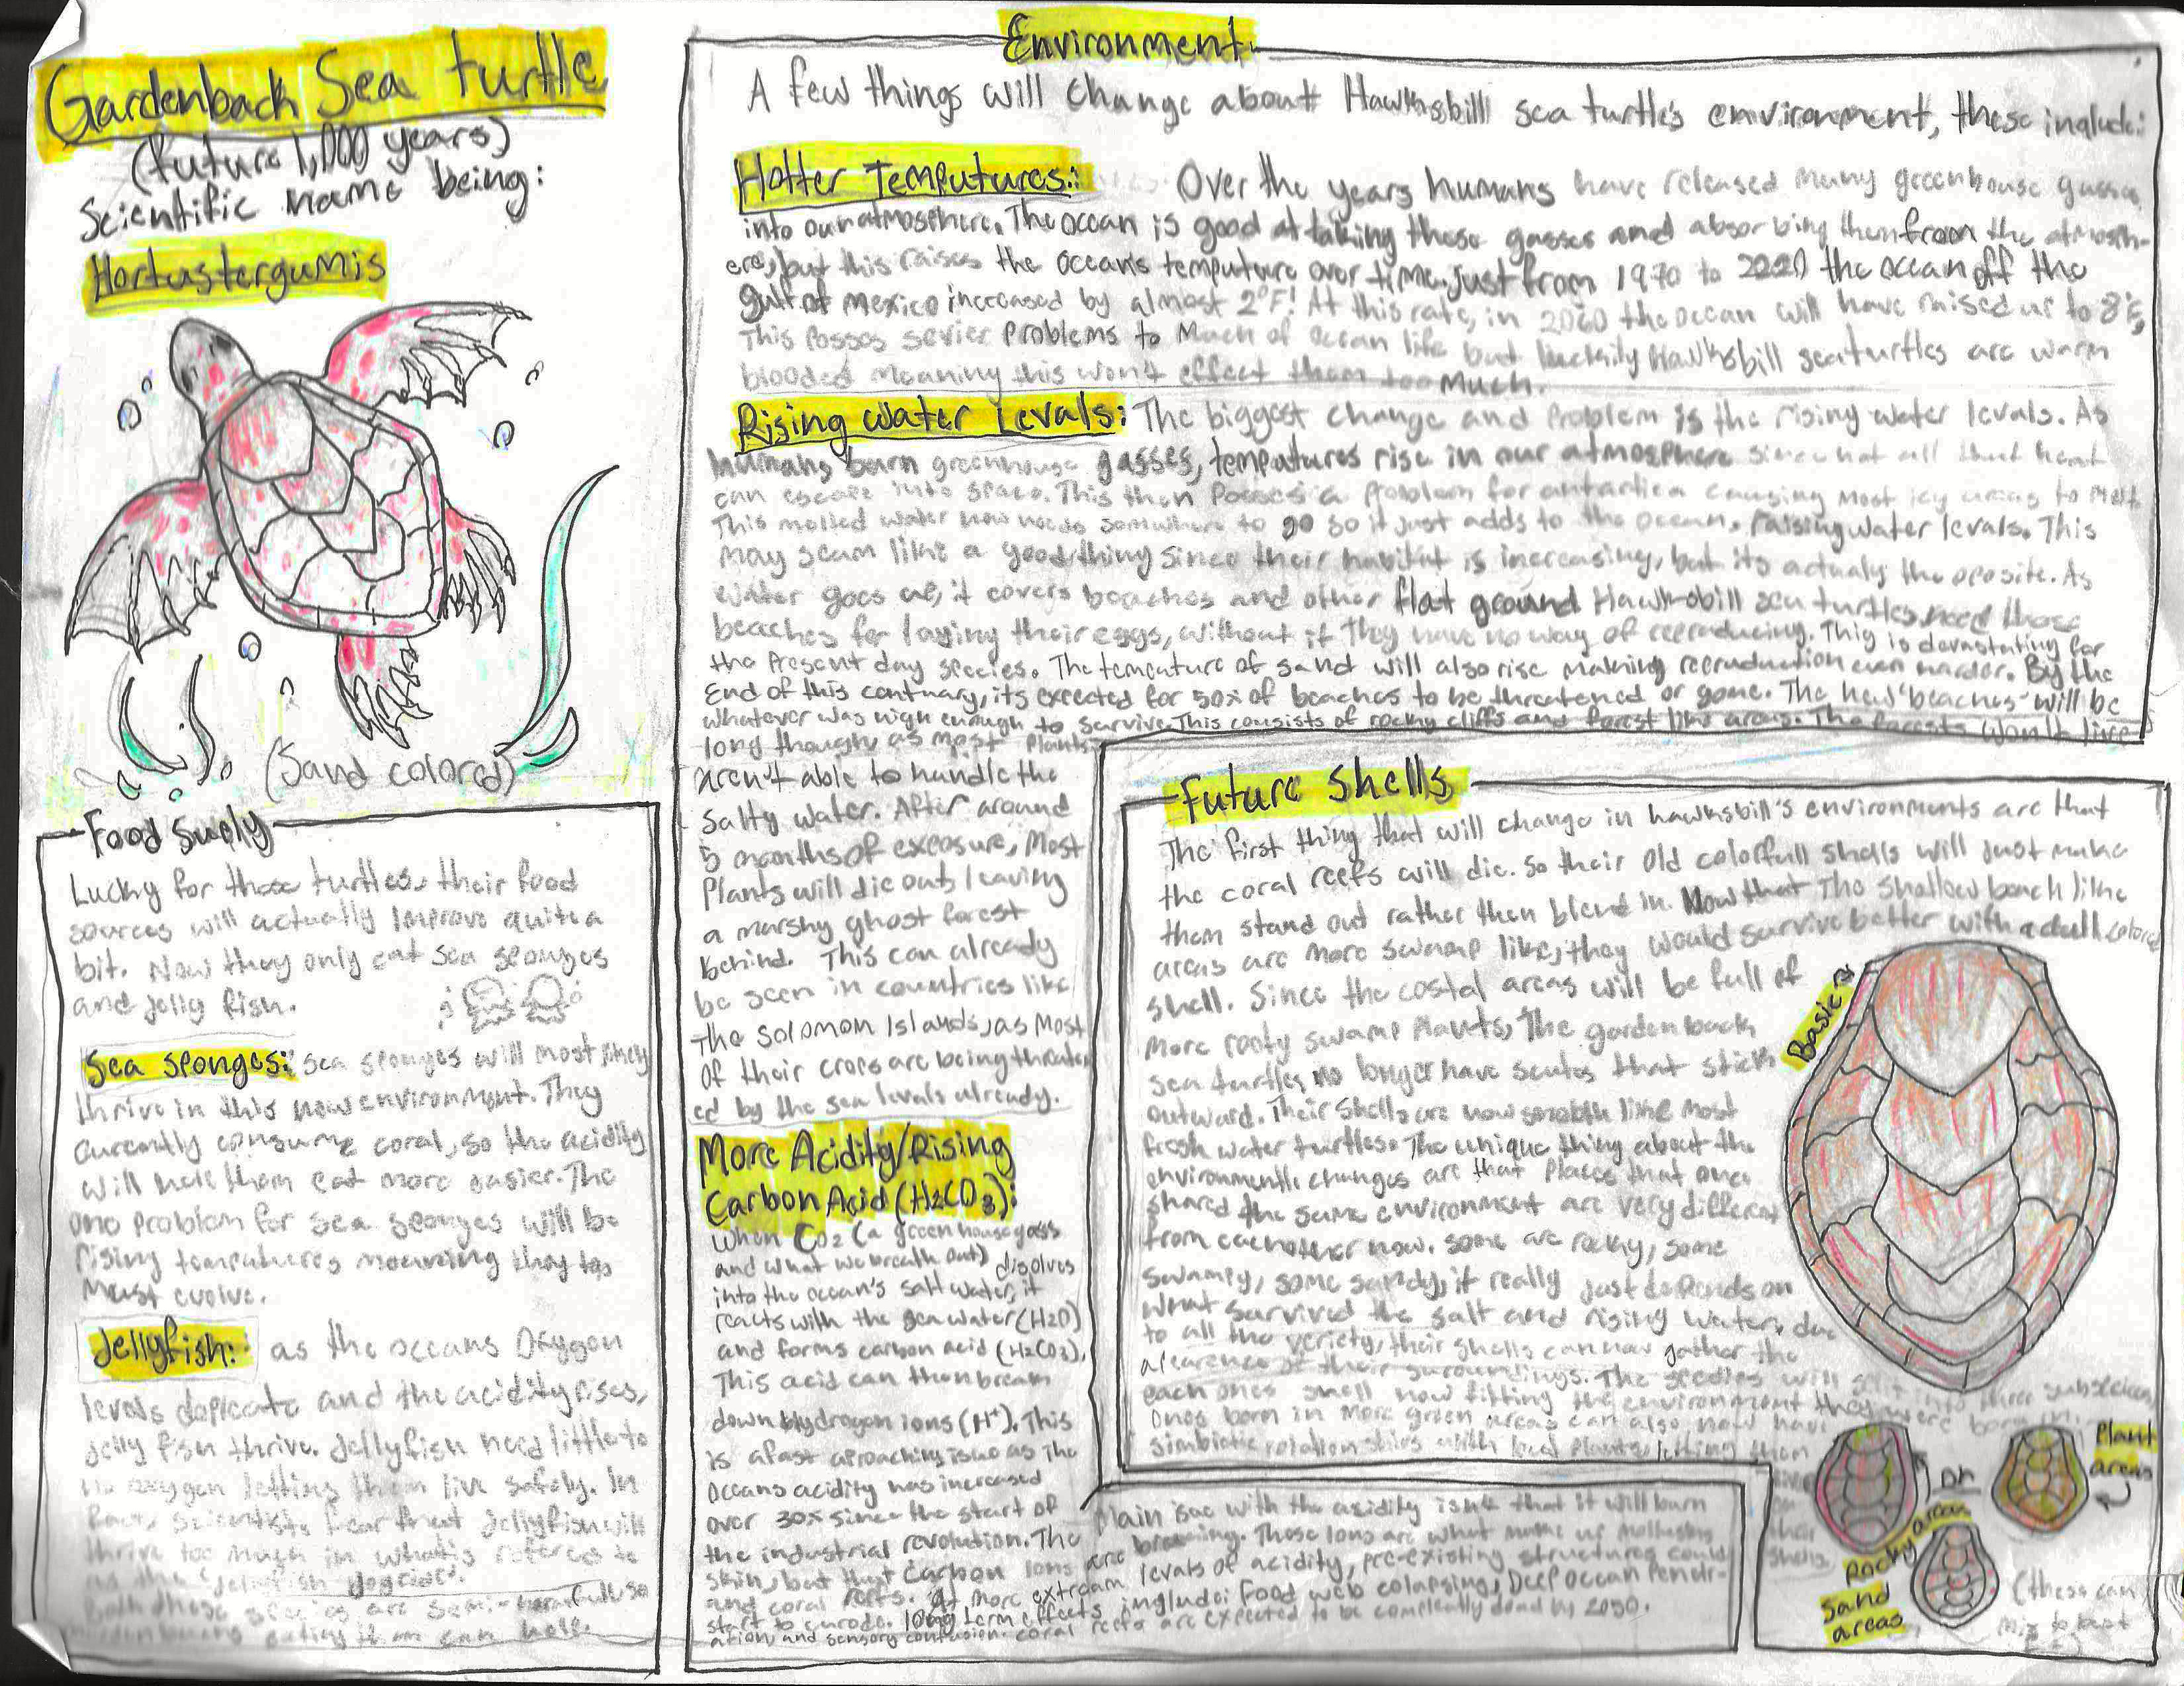 Gardenback Sea turtle
(future 1,000 years)
Scientific name being:
Hortustergumis
(Sand colored)
Food Suply
Lucky for these turtles, their food
sources will actually improve quite a
bit. Now they only eat sea sponges
and jelly fish.
Sea sponges: Sea sponges will most likely
thrive in this new environment. They
currently consume coral, so the acidity
will help them eat more easier. The
one problem for sea sponges will be
rising temputures meaning they too
must evolve.
Jellyfish: as the oceans Oxygen
levels depleate and the acidity rises,
jelly fish thrive. Jellyfish need little to
no oxygen letting them live safely. In
fact, scientists fear that Jellyfish will
thrive too much in what's refered to
as the "Jellyfish
Both these species are semi-harmful so
eating them can help.
Environment
A few things will change about Hawksbill sea turtle's environment, these include:
Hotter Temputures: Over the years humans have released many greenhouse gasses
into our atmosphere. The ocean is good at taking these gasses and absorbing them from the atmosph-
ere, but this raises the ocean's temputure over time. Just from 1970 to 2020 the ocean off the
gulf of mexico increased by almost 2°F! At this rate, in 2060 the ocean will have raised up to 8°F,
This posses sevier problems to much of ocean life but luckily Hawksbill seaturtles are warm
blooded meaning this won't effect them too much.
Rising Water Levals: The biggest change and problem is the rising water levals. As
humans burn greenhouse gasses, tempatures rise in our atmosphere since not all that heat
can escape into space. This then posses a problem for antartica causing most icy areas to melt.
This melted water now needs somewhere to go so it just adds to the ocean, raising water levals. This
may seam like a good thing since their habitat is increasing, but its actualy the oposite. As
water goes up, it covers beaches and other flat ground Hawksbill sea turtles need those
beaches for laying their eggs, without it they have no way of reproducing. This is devastating for
the present day species. The tempature of sand will also rise making reproduction even harder. By the
end of this centuary, its expected for 50% of beaches to be threatened or gone. The new "beaches" will be
whatever was high enough to survive. This consists of rocky cliffs and forest like areas. The forests won't live
long though, as most plants
aren't able to handle the
salty water. After around
5 months of exposure, Most
plants will die out, leaving
a marshy ghost forest
behind. This can already
be seen in countries like
The Solomon Islands, as most
of their crops are being threaten
ed by the sea levals already.
More Acidity/Rising
Carbon Acid (H2CO3):
When CO2 (a greenhouse gass
and what we breath out) disolves
into the ocean's salt water, it
reacts with the sea water (H2O)
and forms carbon acid (H2CO3).
This acid can then break
down hydrogen ions (H+). This
is a fast aproaching isue as the
Oceans acidity has increased
over 30% since the start of
the industrial revolution. The main isue with the acidity isn't that it will burn
skin, but that Carbon Ions are breaking. Those Ions are what make up mollusks
and coral reefs. At more extream levals of acidity, pre-existing structures could
start to erode. long term effects include: Food web colapsing, Deep ocean penetr-
ation, and sensory confusion. coral reefs are expected to be compleatly dead by 2050.
Future Shells
The first thing that will change in hawksbill's environments are that
the coral reefs will die. So their old colorfull shells will just make
them stand out rather then blend in. Now that The shallow beach like
areas are more swamp like, they would survive better with a dull colored
shell. Since the costal areas will be full of
more rooty swamp plants, The gardenback
sea turtles no longer have scutes that stick
outward. Their shells are now smooth like most
fresh water turtles. The unique thing about the
environmentle changes are that places that once
shared the same environment are very different
from eachother now. some are rocky, some
swampy, some sandy, it really just depends on
what survived the salt and rising water, due
to all the veriety, their shells can now gather the
apearence of their suroundings. The species will split into three subspecies,
each ones shell now fitting the environment they were born in.
Ones born in more green areas can also now have
simbiotic relation ships with local plants, letting them
live
on
their
shells.
Basic
Plant
areas
or
Rocky areas
Sand
areas
(these can
mix to best